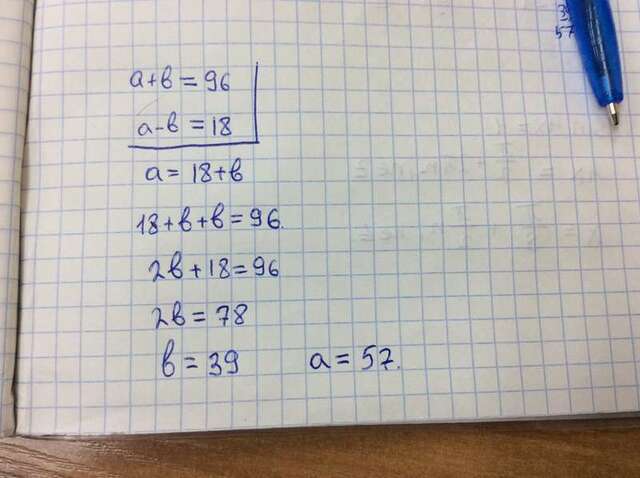 a+b=96
a-b=18
a=18+b
18+b+b=96.
2b+18=96
2b=78
b=39 a=57.
57